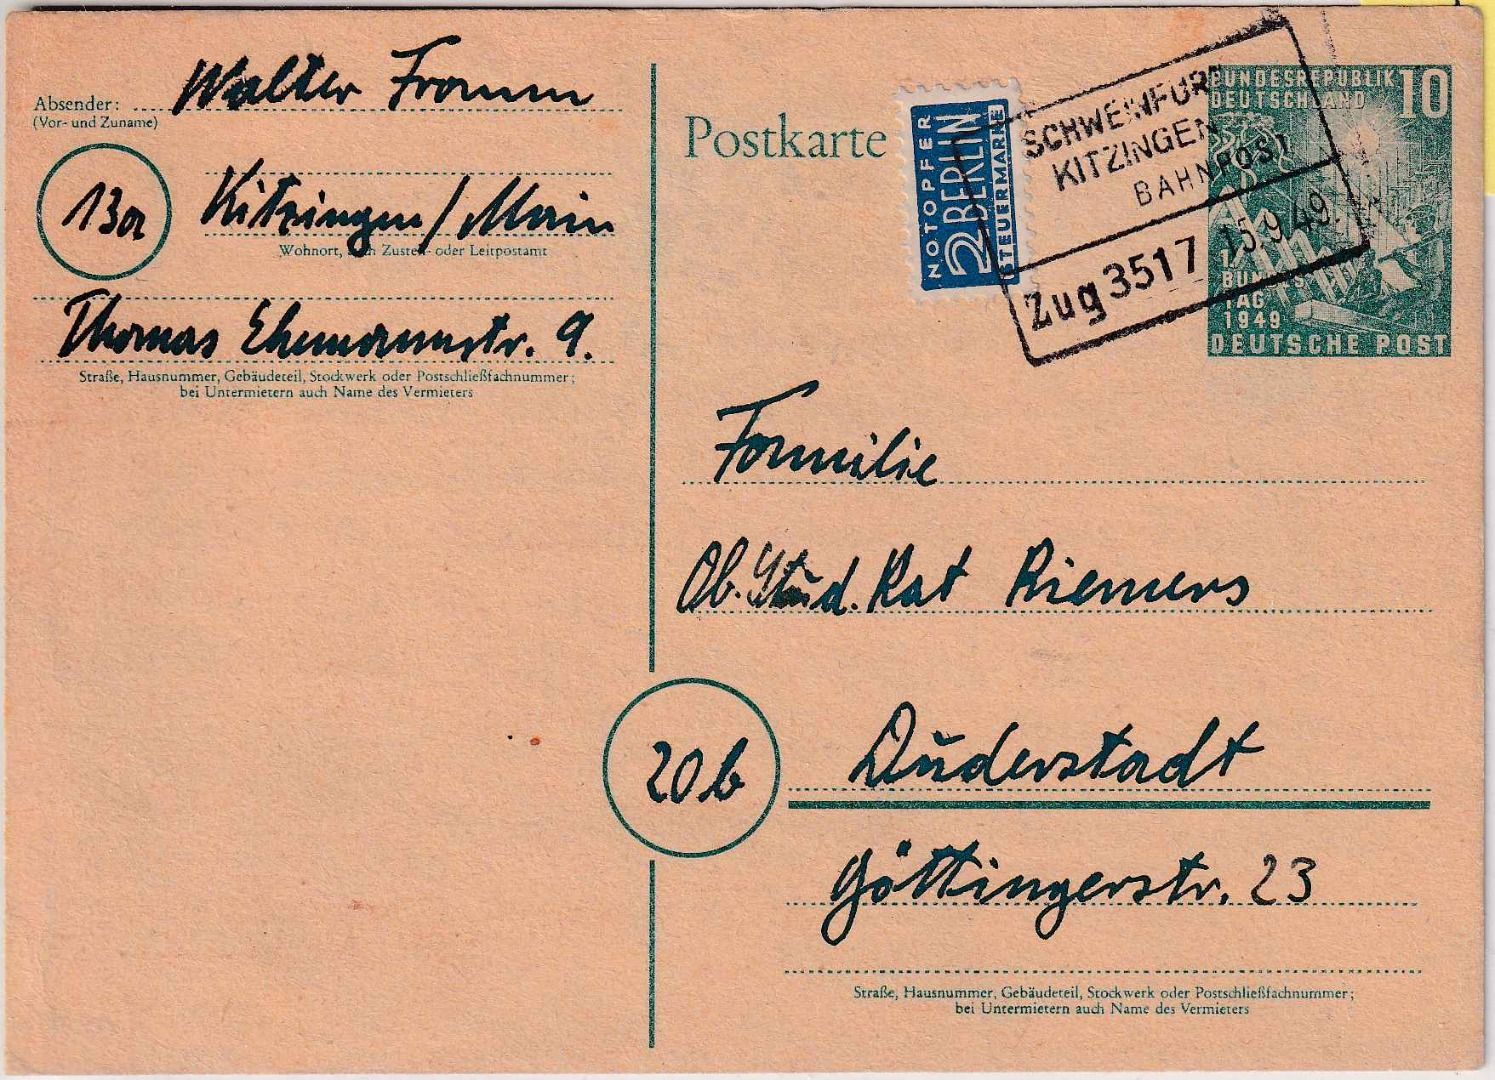 Absender: Walter Fromm
(Vor- und Zuname)
13a
Kitzingen/Main
Wohnort, auch Zustell- oder Leitpostamt
Thomas Ehemannstr. 9.
Straße, Hausnummer, Gebäudeteil, Stockwerk oder Postschließfachnummer;
bei Untermietern auch Name des Vermieters
Postkarte
NOTOPFER
2 BERLIN
STEUERMARKE
SCHWEINFURT
KITZINGEN
BAHNPOST
Zug 3517 15.9.49.
BUNDESREPUBLIK 10
DEUTSCHLAND
1.
BUNDES
TAG
1949
DEUTSCHE POST
Familie
Ob. Stud. Rat Riemers
20b
Duderstadt
Göttingerstr. 23
Straße, Hausnummer, Gebäudeteil, Stockwerk oder Postschließfachnummer;
bei Untermietern auch Name des Vermieters